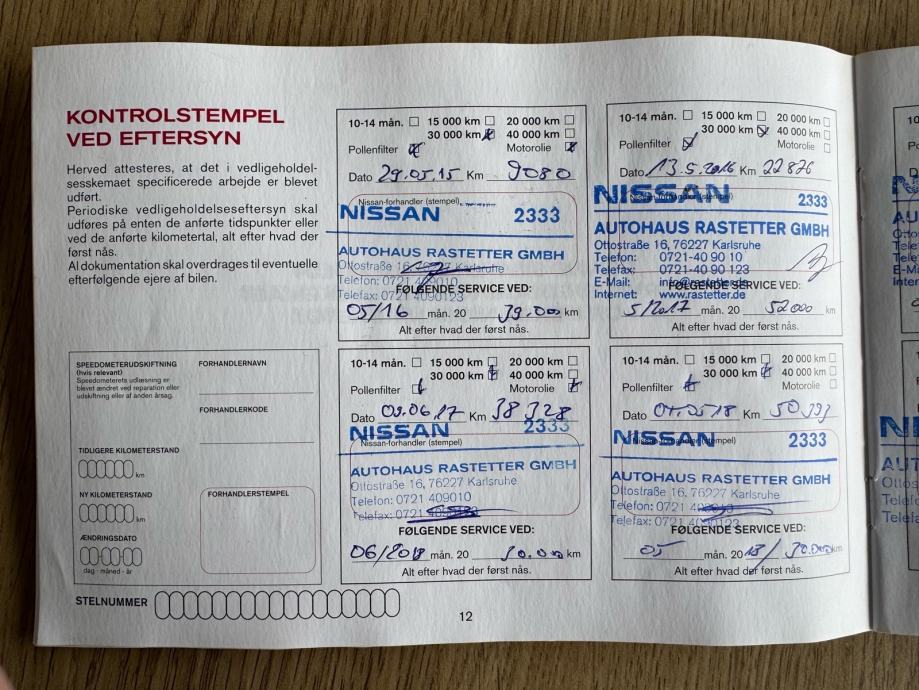 KONTROLSTEMPEL
VED EFTERSYN
Herved attesteres, at det i vedligeholdel-
sesskemaet specificerede arbejde er blevet
udført.
Periodiske vedligeholdelseseftersyn skal
udføres på enten de anførte tidspunkter eller
ved de anførte kilometertal, alt efter hvad der
først nås.
Al dokumentation skal overdrages til eventuelle
efterfølgende ejere af bilen.
10-14 mån. 15 000 km 20 000 km
30 000 km 40 000 km
Pollenfilter Motorolie
Dato 29.05.15 Km 9080
Nissan-forhandler (stempel)
NISSAN 2333
AUTOHAUS RASTETTER GMBH
Ottostraße 16, 76227 Karlsruhe
Telefon: 0721 409010
Telefax: 0721 4090123
FØLGENDE SERVICE VED:
05/16 mån. 20 39.000 km
Alt efter hvad der først nås.
10-14 mån. 15 000 km 20 000 km
30 000 km 40 000 km
Pollenfilter Motorolie
Dato 13.5.2016 Km 22876
Nissan-forhandler (stempel)
NISSAN 2333
AUTOHAUS RASTETTER GMBH
Ottostraße 16, 76227 Karlsruhe
Telefon: 0721-40 90 10
Telefax: 0721-40 90 123
E-Mail: info@rastetter.de
Internet: www.rastetter.de
FØLGENDE SERVICE VED:
5/2017 mån. 20 52000 km
Alt efter hvad der først nås.
SPEEDOMETERUDSKIFTNING
(hvis relevant)
Speedometerets udlæsning er
blevet ændret ved reparation eller
udskiftning eller af anden årsag.
FORHANDLERNAVN
FORHANDLERKODE
TIDLIGERE KILOMETERSTAND
km
NY KILOMETERSTAND
km
ÆNDRINGSDATO
dag - måned - år
FORHANDLERSTEMPEL
10-14 mån. 15 000 km 20 000 km
30 000 km 40 000 km
Pollenfilter Motorolie
Dato 09.06.17 Km 38 328
Nissan-forhandler (stempel)
NISSAN 2333
AUTOHAUS RASTETTER GMBH
Ottostraße 16, 76227 Karlsruhe
Telefon: 0721 409010
Telefax: 0721
FØLGENDE SERVICE VED:
06/2018 mån. 20 30.000 km
Alt efter hvad der først nås.
10-14 mån. 15 000 km 20 000 km
30 000 km 40 000 km
Pollenfilter Motorolie
Dato Km
Nissan-forhandler (stempel)
NISSAN 2333
AUTOHAUS RASTETTER GMBH
Ottostraße 16, 76227 Karlsruhe
Telefon: 0721
Telefax: 0721 4090123
FØLGENDE SERVICE VED:
05 mån. 20 30.000 km
Alt efter hvad der først nås.
STELNUMMER
12